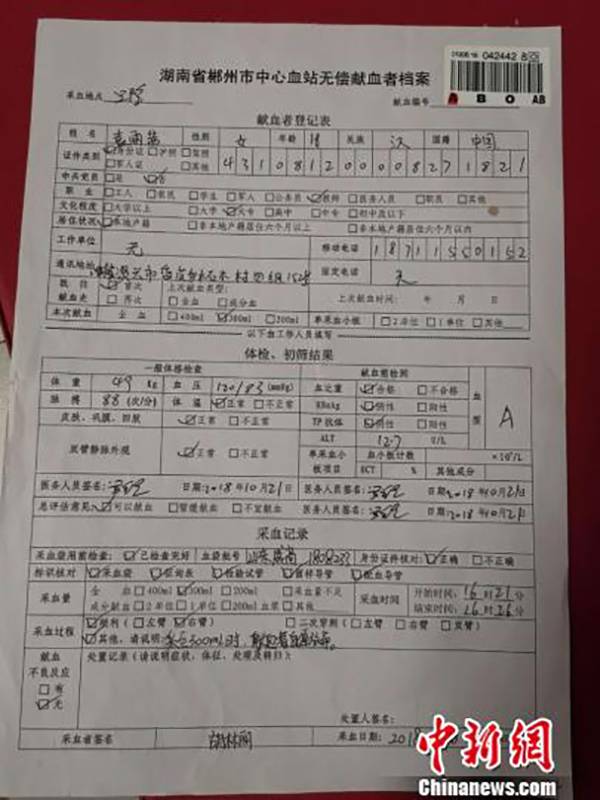 042442 8
湖南省郴州市中心血站无偿献血者档案
采血地点 献血编号 A B O AB
献血者登记表
姓名 性别 女 年龄 民族 汉 国籍 中国
证件类别 身份证 护照 驾照 军人证 其他
中共党员 是 否
职业 工人 农民 学生 军人 公务员 教师 医务人员 职员 其他
文化程度 大学以上 大学 大专 高中 中专 初中及以下
居住状况 本地户籍 非本地户籍居住六个月以上 非本地户籍居住六个月以内
工作单位 无 移动电话 18711550152
通讯地址 固定电话 无
既往献血史 首次 再次 上次献血类型: 全血 成分血 上次献血时间: 年 月 日
本次献血 全血 400ml 300ml 200ml 单采血小板 2单位 1单位 其他
以下由工作人员填写
体检、初筛结果
一般体格检查 献血前检测
体重 49 Kg 血压 120/83 (mmHg) 血比重 合格 不合格 血型 A
脉搏 88 (次/分) 体温 正常 不正常 HBsAg 阴性 阳性
皮肤、巩膜、四肢 正常 不正常 TP抗体 阴性 阳性
ALT 12.7 U/L
双臂静脉外观 正常 不正常 单采血小板项目 血小板计数 ×10⁹/L
HCT % 其他成分
医务人员签名: 日期: 2018年10月21日 医务人员签名: 日期: 2018年10月21日
总评估意见 可以献血 暂缓献血 不宜献血 医务人员签名: 日期: 2018年10月21日
采血记录
采血袋用前检查: 已检查完好 血袋批号 身份证件核对: 正确 不正确
标识核对 采血袋 征询表 检验试管 留样导管 配血导管
采血量 全血 400ml 300ml 200ml 采血量不足 采血时间 开始时间: 16时21分
成分献血 2单位 1单位 200ml血浆 其他 结束时间: 16时26分
采血过程 顺利 (左臂 右臂) 二次穿刺 (左臂 右臂 双臂)
其他,请说明:
献血不良反应 有 无 处置记录(请说明症状、体征、处理及转归):
处置人签名:
采血者签名 采血日期: 2018
中新网
Chinanews.com